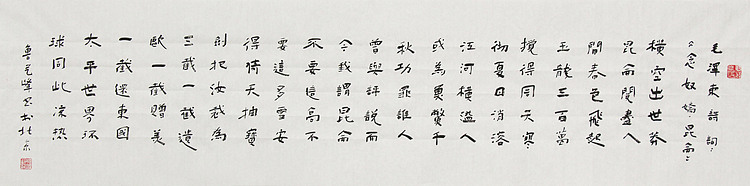 毛澤東詩詞
念奴嬌昆侖
橫空出世莽
昆侖閱盡人
間春色飛起
玉龍三百萬
攪得周天寒
徹夏日消溶
江河橫溢人
或為魚鱉千
秋功罪誰人
曾與評說而
今我謂昆侖
不要這高不
要這多雪安
得倚天抽寶
劍把汝裁為
三截一截遺
歐一截贈美
一截還東國
太平世界環
球同此涼熱
書於北京